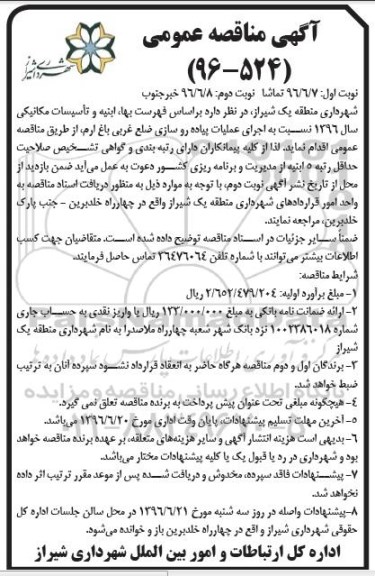 آگهی مناقصه عمومی
(۹۶-۵۲۴)
شهرداری شیراز
نوبت اول: ۹۶/۶/۷ تماشا نوبت دوم: ۹۶/۶/۸ خبرجنوب
شهرداری منطقه یک شیراز، در نظر دارد براساس فهرست بها، ابنیه و تأسیسات مکانیکی
سال ۱۳۹۶ نسبت به اجرای عملیات پیاده رو سازی ضلع غربی باغ ارم، از طریق مناقصه
عمومی اقدام نماید. لذا از کلیه پیمانکاران دارای رتبه بندی و گواهی تشخیص صلاحیت
حداقل رتبه ۵ ابنیه از مدیریت و برنامه ریزی کشور دعوت به عمل می‌آید ضمن بازدید از
محل از تاریخ نشر آگهی نوبت دوم، با توجه به موارد ذیل به منظور دریافت اسناد مناقصه به
واحد امور قراردادهای شهرداری منطقه یک شیراز واقع در چهارراه خلدبرین - جنب پارک
خلدبرین، مراجعه نمایند.
ضمناً سایر جزئیات در اسناد مناقصه توضیح داده شده است. متقاضیان جهت کسب
اطلاعات بیشتر می‌توانند با شماره تلفن ۳۶۴۷۶۰۶۴ تماس حاصل فرمایند.
شرایط مناقصه:
۱- مبلغ برآورد اولیه: ۲/۶۵۲/۴۷۹/۲۰۴ ریال
۲- ارائه ضمانت نامه بانکی به مبلغ ۱۳۳/۰۰۰/۰۰۰ ریال یا واریز نقدی به حساب جاری
شماره ۱۰۰۲۳۸۶۰۱۸ نزد بانک شهر شعبه چهارراه ملاصدرا به نام شهرداری منطقه یک
شیراز
۳- برندگان اول و دوم مناقصه هرگاه حاضر به انعقاد قرارداد نشود سپرده آنان به ترتیب
ضبط خواهد شد.
۴- هیچگونه مبلغی تحت عنوان پیش پرداخت به برنده مناقصه تعلق نمی گیرد.
۵- آخرین مهلت تسلیم پیشنهادات، پایان وقت اداری مورخ ۱۳۹۶/۶/۲۰ می‌باشد.
۶- بدیهی است هزینه انتشار آگهی و سایر هزینه‌های متعلقه، بر عهده برنده مناقصه خواهد
بود و شهرداری در رد یا قبول یک یا کلیه پیشنهادات مختار می‌باشد.
۷- پیشنهادات فاقد سپرده، مخدوش و دریافت شده پس از موعد مقرر ترتیب اثر داده
نخواهد شد.
۸- پیشنهادات واصله در روز سه شنبه مورخ ۱۳۹۶/۶/۲۱ در محل سالن جلسات اداره کل
حقوقی شهرداری شیراز و اقع در چهارراه خلدبرین باز و خوانده می‌شود.
اداره کل ارتباطات و امور بین الملل شهرداری شیراز